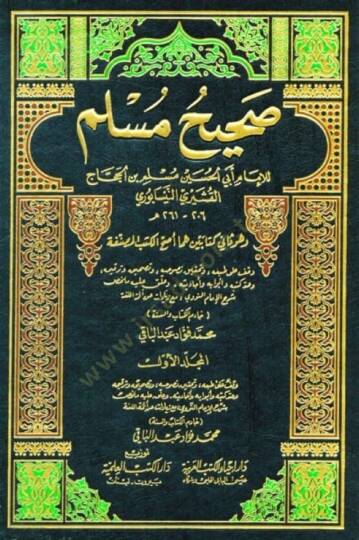 صحيح مسلم
للإمام أبي الحسين مسلم بن الحجاج
القشيري النيسابوري
٢٠٦ - ٢٦١ هـ
وهو ثاني كتابين هما أصح الكتب المصنفة
وقف على طبعه، وتحقيق نصوصه، وتصحيحه وترقيمه،
وعد كتبه وأبوابه وأحاديثه، وعلق عليه ملخص
شرح الإمام النووي، مع زيادات عن أئمة اللغة
(خادم الكتاب والسنة)
محمد فؤاد عبد الباقي
المجلد الأول
(خادم الكتاب والسنة)
محمد فؤاد عبد الباقي
توزيع
دار إحياء الكتب العربية
دار الكتب العلمية
عيسى البابي الحلبي وشركاه
بيروت - لبنان